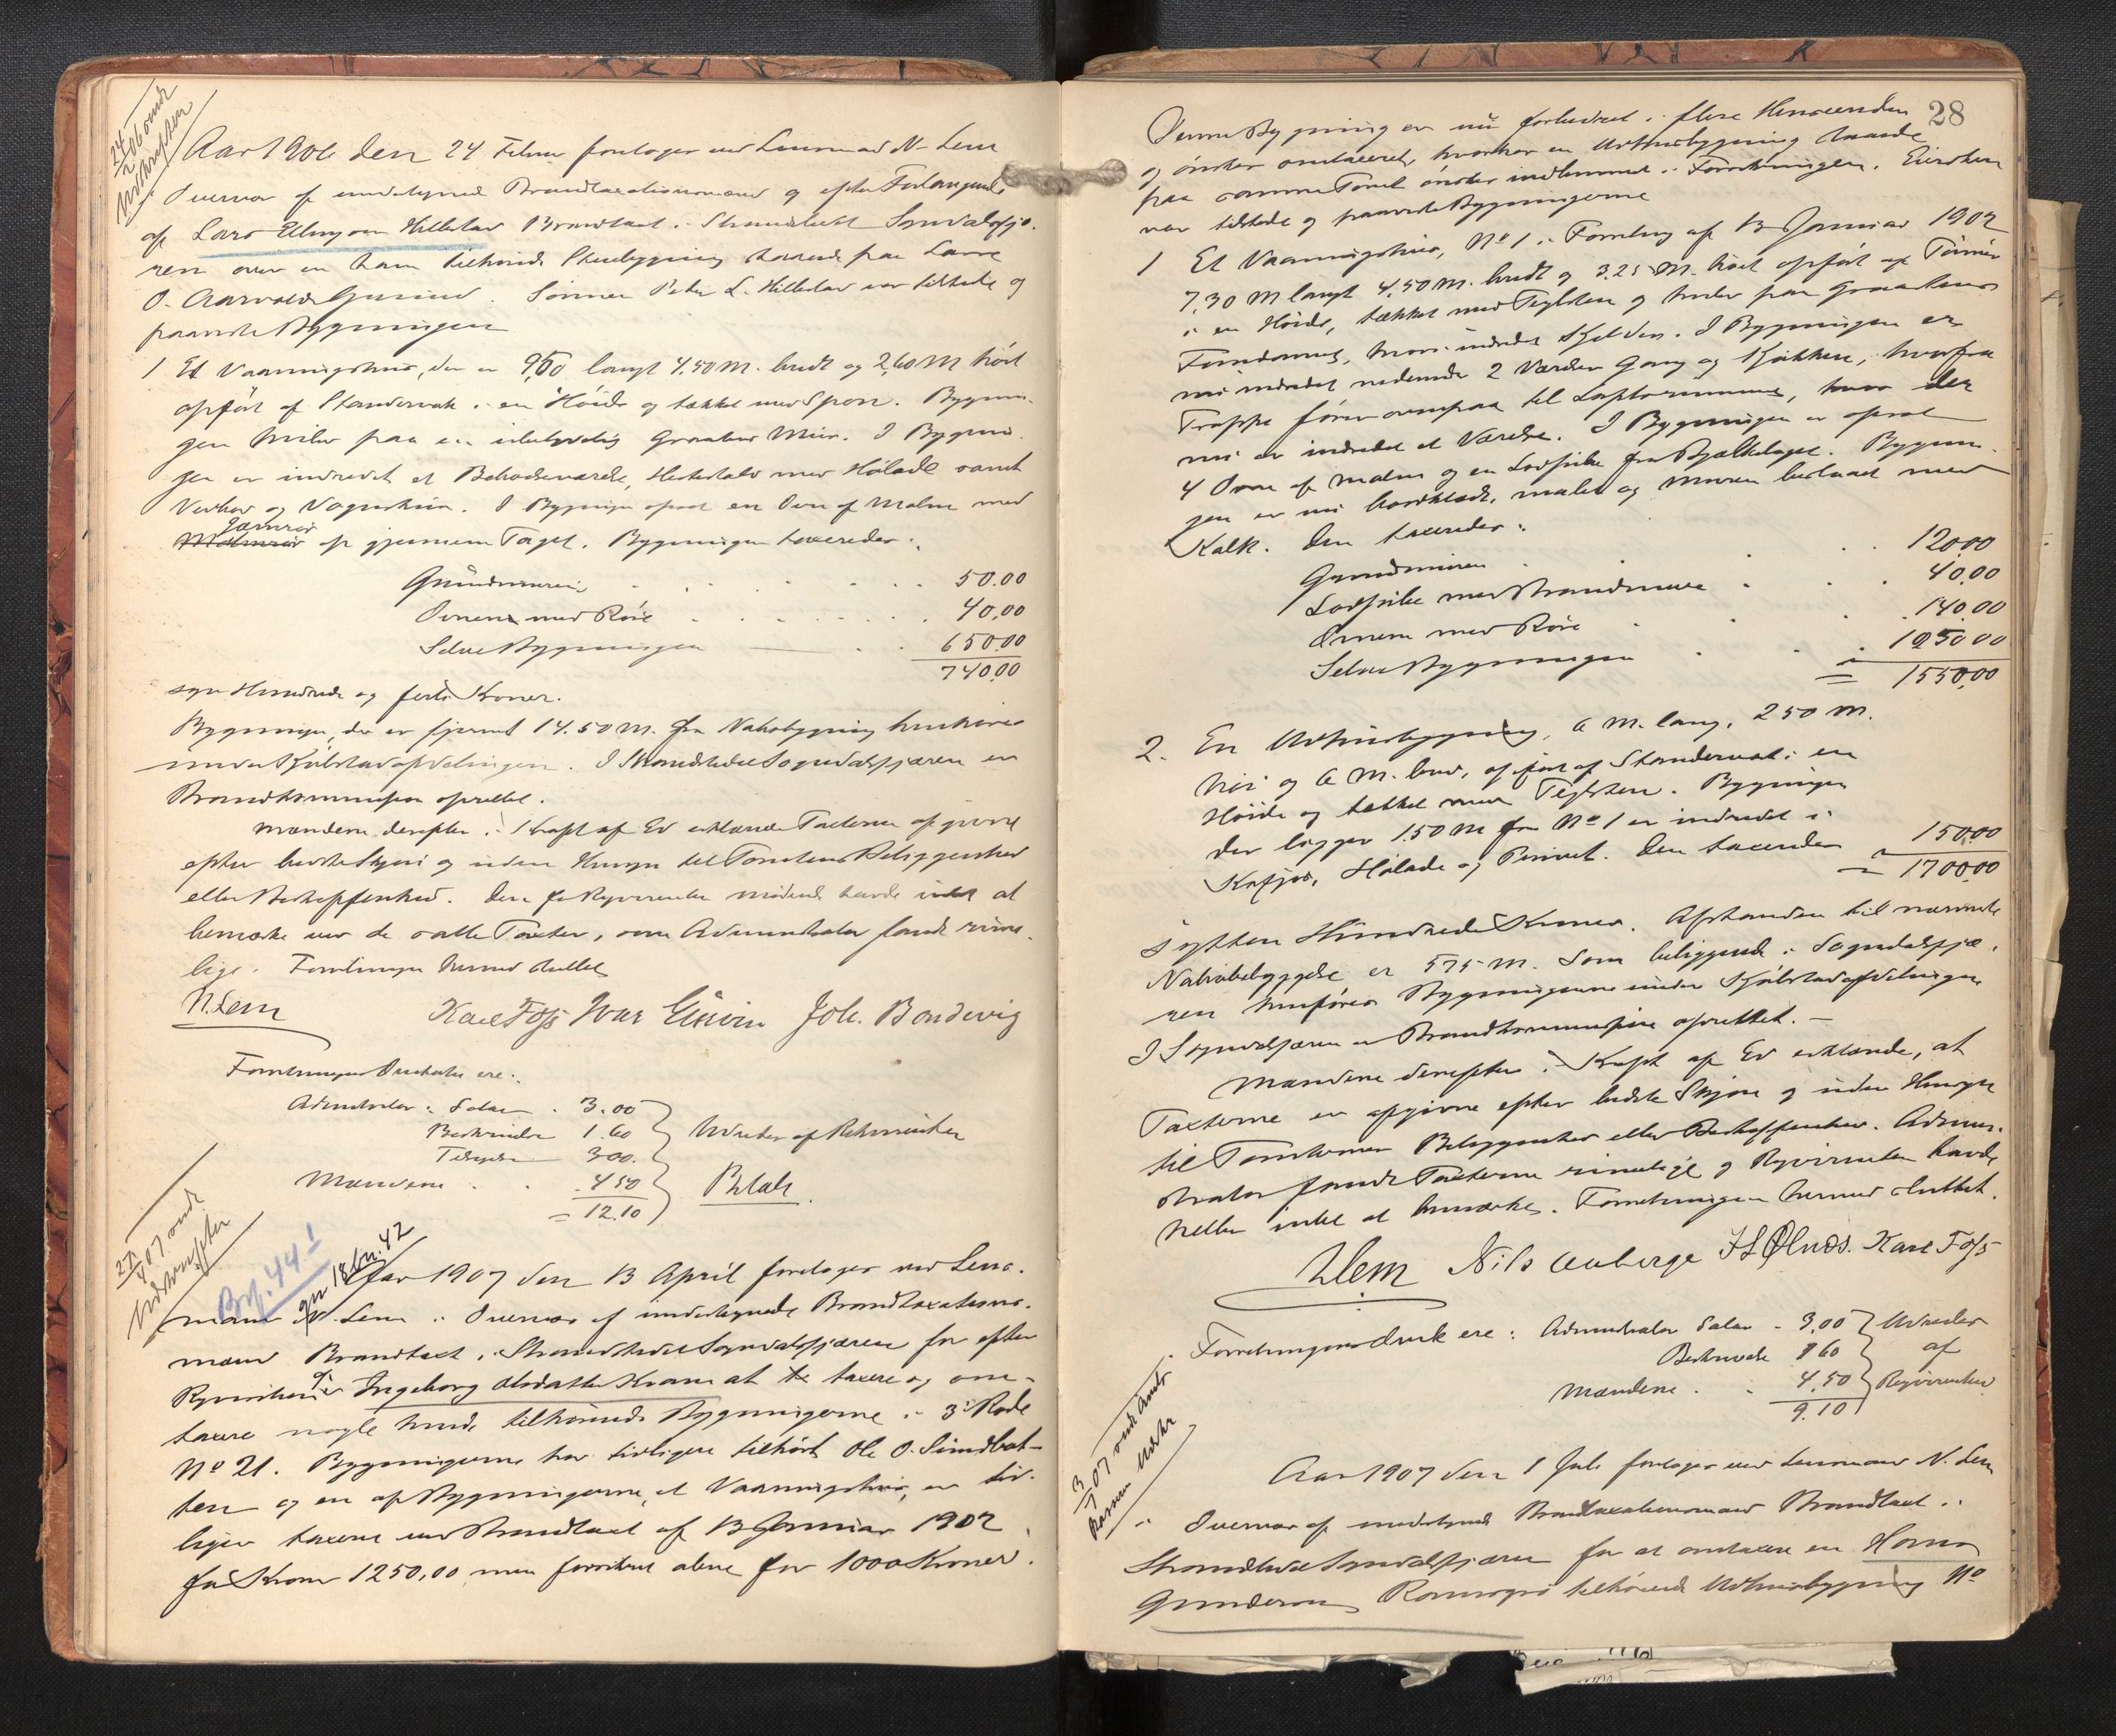 24/2 06 sendt
Udskriften
Aar 1906 den 24 Febru foretoges ved Lensmand N. Lem
i Overvær af undertegnede Brandtaxationsmænd og efter Forlangende
af Lars Ellingsen Hillestad Brandtaxt i Strandstedet Sogndalsfjæ-
ren over en ham tilhørende Skurbygning staaende paa Lars
O. Aarvolds Grund. Sønnen Peder L. Hillestad var tilstede og
paaviste Bygningen
1 Et Vaaningshus, der er 9,50 langt 4,50 M. bredt og 2,60 M høit
opført af Standerværk i en Høide og tækket med Spon. Bygnin-
gen hviler paa en Graasten Mur. I Bygnin-
gen er indredet et Beboelsesværelse, Hestestald med Hølade samt
Vedhus og Vognskur. I Bygningen opsat en Ovn af Malm med
Jærnrør
Malmrør op gjennem Taget. Bygningen taxeredes:
Grundmuren . . . . 50.00
Ovnen med Rør . . . . 40,00
Selve Bygningen . . 650.00
740.00
syv Hundrede og forti Kroner.
Bygningen, der er fjernet 14.50 M. fra Nabobygning henføres
under Kjøbstadafdelingen. I Strandstedet Sogndalsfjæren er
Brandkommission oprettet.
Mændene derefter i Kraft af Ed erklærede Taxterne afgivne
efter bedste Skjøn og uden Hensyn til Tomtens Beliggenhed
eller Beskaffenhed. Den for Rekvirenten mødende havde intet at
bemærke ved de satte Taxter, som Administrator fandt rime-
lige. Forretningen hermed sluttet
N. Lem Karl Foss Ivar Eisvin Joh. Bondevig
Forretningens Omkostn. ere:
Administrator i Salær . 3.00
Beskrivelse 1.60
Tilsyn 3.00.
Udredes af Rekvirenten
Mændene . . 4.50
= 12.10
Betalt.
27/4 07 sendt
Udskrifter
By. 44 1
gn 18 bn. 42
Aar 1907 den 13 April foretoges ved Lens-
mand N. Lem i Overvær af undertegnede Brandtaxations-
mænd Brandtaxt i Strandstedet Sogndalsfjæren for efter
Rekvisition af Ingeborg Olsdatter Kram at taxere og om-
taxere nogle hende tilhørende Bygningerne i 3die Rode
No 21. Bygningerne har tidligere tilhørt Ole O. Sundbot-
ten og en af Bygningerne, et Vaaningshus, er tid-
ligere taxeret ved Brandtaxt af 13 Januar 1902
for Kroner 1250,00 men forsikret alene for 1000 Kroner.
28
Denne Bygning er nu forbedret i flere Henseender
og ønskes omtaxeret, hvorhos en Udhusbygning staaende
paa samme Tomt ønskes indlemmet i Forsikringen. Eiersken
var tilstede og paaviste Bygningerne
1 Et Vaaningshus, No 1 i Forretning af 13 Januar 1902
7,30 M langt 4,50 M. bredt og 3.25 M. høit opført af Tømmer
i en Høide, tækket med Teglsten og hviler paa Graastens
Fundament, hvori indredet Kjelder. I Bygningen er
nu indredet nedenunder 2 Værelser Gang og Kjøkken, hvorfra
Trappe fører ovenpaa til Loftsrummet, hvor der
nu er indredet et Værelse. I Bygningen er opsat
4 Ovne af Malm og en Lodpibe fra Bjælkelaget. Bygnin-
gen er nu bordklædt, malet og Muren beslaaet med
Kalk. Den taxeredes:
Grundmuren . . . 120.00
Lodpibe med Brandmure . . . 40.00
Ovnene med Rør . . . 140.00
Selve Bygningen . . . 1250 00
= 1550,00
2. En Udhusbygning, 6 M. lang, 2.50 M.
høi og 6 M. bred, opført af Standerværk i en
Høide og tækket med Teglsten. Bygningen
der ligger 1.50 M fra No 1 er indredet i
Kufjøs, Hølade og Privet. Den taxeredes 150.00
= 1700.00
Sytten Hundrede Kroner. Afstanden til nærmeste
Nabobebyggelse er 5,75 M. Som beliggende i Sogndalsfjæ-
ren henføres Bygningerne under Kjøbstadafdelingen
I Sogndalsfjæren er Brandkommission oprettet. —
Mændene derefter i Kraft af Ed erklærede, at
Taxterne er afgivne efter bedste Skjøn og uden Hensyn
til Tomternes Beliggenhed eller Beskaffenhed. Admini-
strator fandt Taxterne rimelige og Rekvirenten havde
heller intet at bemærke. Forretningen hermed sluttet.
N. Lem Nils Auberge Karl Foss
Forretningens Omk ere: Administrator Salær . 3,00
Beskrivelse 1 60
Mændene . . 4,50
9.10
Udredes
af
Rekvirenten
3/7 07 sendt
Aar 1907 den 1 Juli foretoges ved Lensmand N. Lem
i Overvær af undertegnede Brandtaxationsmænd Brandtaxt i
Strandstedet Sogndalsfjæren for at omtaxere en Hans
Gundersen tilhørende Udhusbygning No